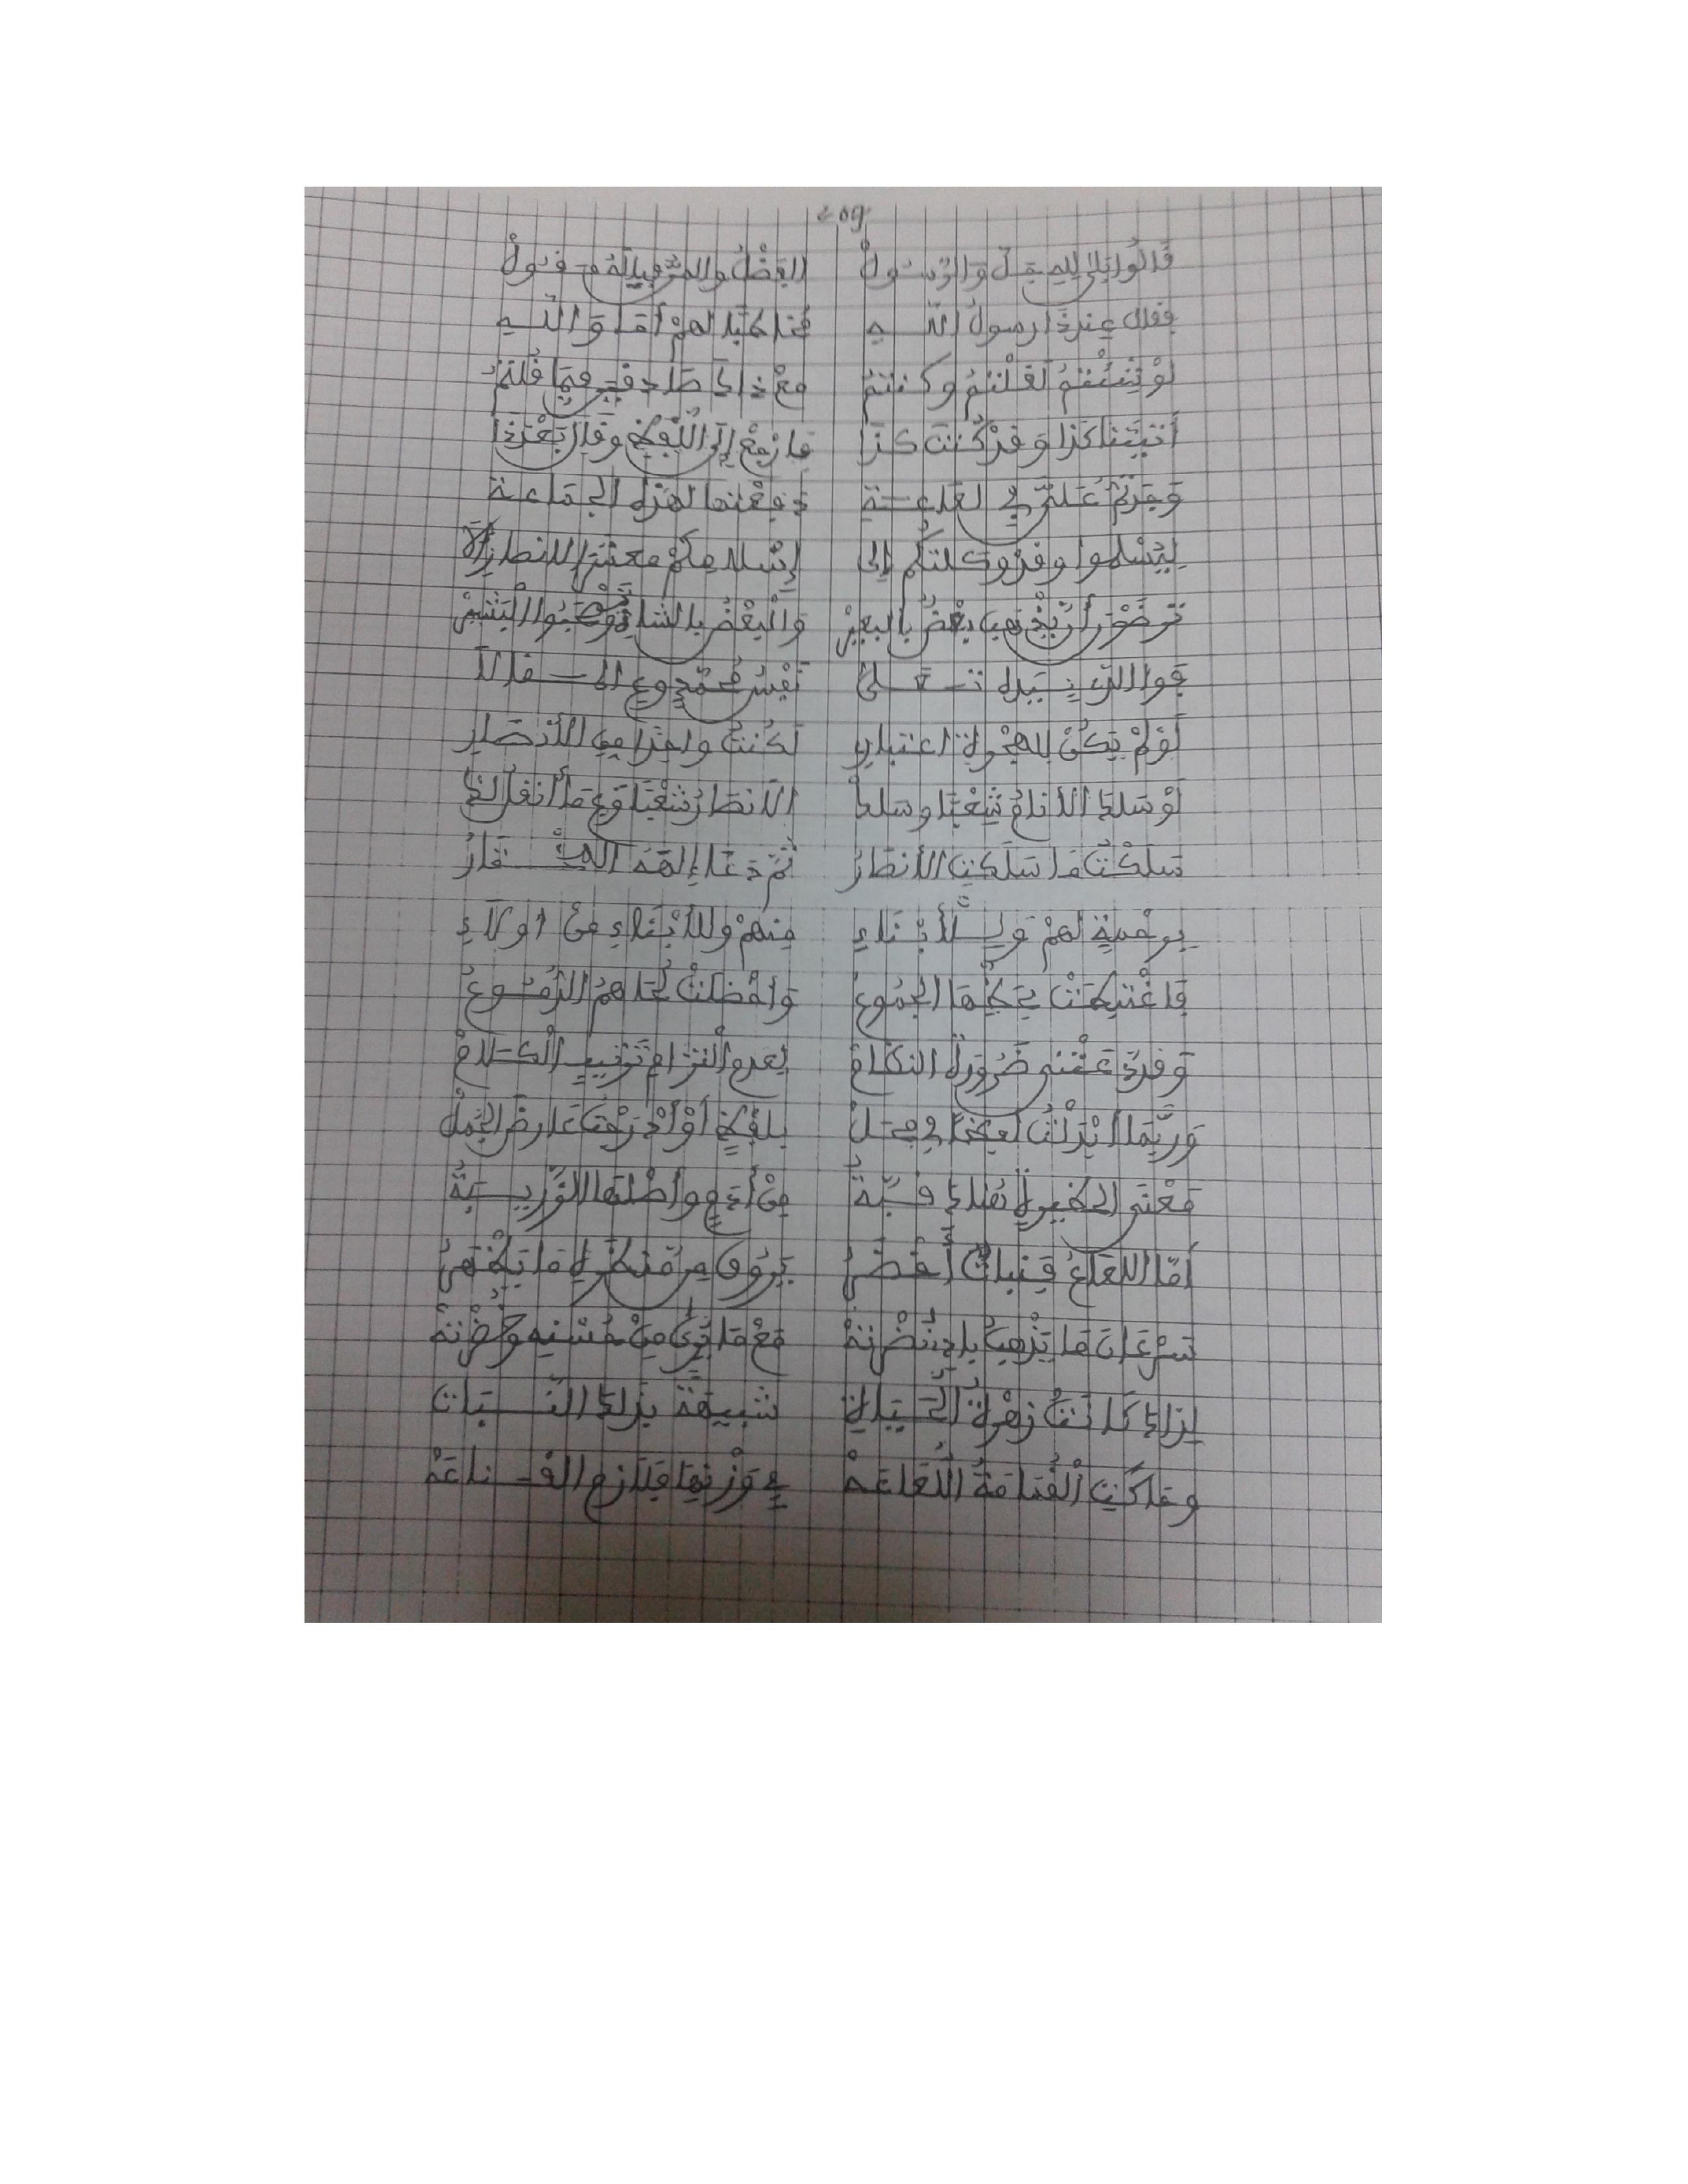 209
قَالُوا بَلَى لِلهِ جَلَّ وَالرَّسُولْ الفَضْلُ والمَنُّ فبِاللهِ نَقُولْ
فقال عند ذا رسول اللهِ مخاطبا لهمْ أَمَا وَاللهِ
لَوْ شِئْتُمُ لَقُلْتُمُ وكنتمُ مَعْ ذاك صادقين فيما قُلتمُ
أَتَيْتَنا كَذا وَقَدْ كُنتَ كذا فارْجِعْ إلى اللَّفظِ وقَالَ بَعْدَ ذا
وَجَدتُّمُ عَلَيَّ في لعاعة دفعْتها لهذه الجماعة
لِيُسْلموا وقد وكلتكُم إلى إسلامكم معشر الأنصار
تَرْضَوْنَ أَنْ يَذهبَ بعْضٌ بالبعيرْ والبعْضُ بالشاةِ
فوالذي بيده نفسُ محمد
لَوْ لَمْ يَكُنْ للهجرة اعتبارِ لَكُنتُ واحدا من الأنصارِ
لَوْ سَلكَ الأنامُ شِعْبًا وسلكْ الأنصارُ شِعْبًا
سَلكْتُ مَا سَلَكتِ الأنصارُ ثُمَّ دَعَا إِلَهَهُ
برحمةٍ لهمْ وَللْأبْنَاءِ مِنهمْ وللأبْنَاءِ مِنْ أولَاءِ
فَاغْتبطتْ بحظها الجموعُ وَأخْضلتْ لحاهمُ الدُّمُوعُ
وَقد دعتْني ضَرورةُ النظامْ لعدم التزام ترتيب الكلامْ
وَرُبَّمَا أَبْدَلْتُ لفظا في محلْ بلفظٍ أوْ أدْرَجْتُ عارض الجملْ
مَعْنى
أمّا اللعَاعُ فنباتٌ أخضرُ يَرُوقُ من منظره ما يَظْهَرُ
سَرْعَانَ مَا يَذْهبُ بادِي نُضْرتهْ مَعْ مَا يُرَى مِنْ حُسْنِه وَخُضْرتهْ
لِذاكَ كَانتْ زهْرةُ الحَيَاةِ شبيهَةً بذاكَ النَّبَاتِ
وهاكنِ القُمَامَةُ اللُّعَاعَهْ في وَزْنِهَا فلازم القناعَهْ